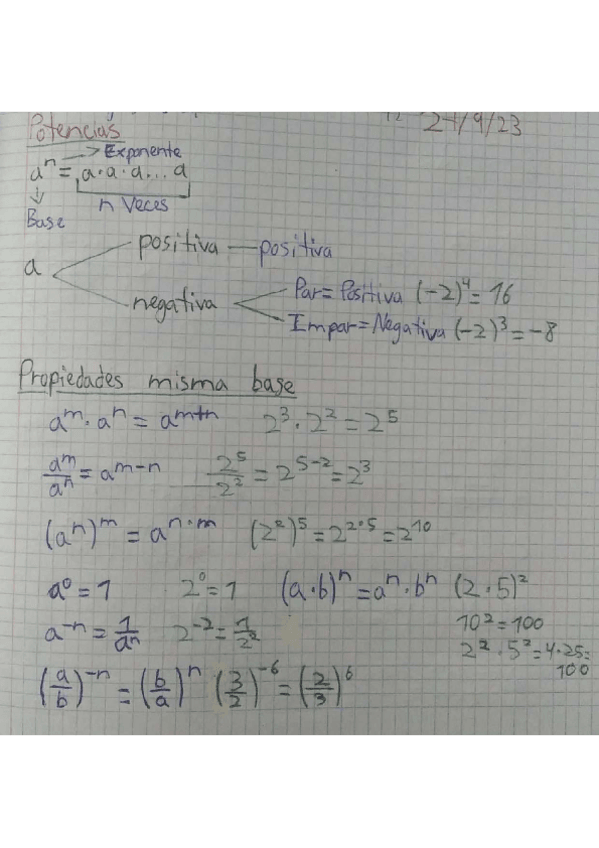 Potencias
21/9/23
aⁿ = a·a·a...a
Exponente
n veces
Base
a
positiva — positiva
negativa
Par = Positiva (-2)⁴ = 16
Impar = Negativa (-2)³ = -8
Propiedades misma base
aᵐ · aⁿ = aᵐ⁺ⁿ 2³ · 2² = 2⁵
aᵐ/aⁿ = aᵐ⁻ⁿ 2⁵/2² = 2⁵⁻² = 2³
(aⁿ)ᵐ = aⁿ·ᵐ (2²)⁵ = 2²·⁵ = 2¹⁰
a⁰ = 1 2⁰ = 1 (a·b)ⁿ = aⁿ·bⁿ (2·5)²
10² = 100
a⁻ⁿ = 1/aⁿ 2⁻² = 1/2²
2² · 5² = 4·25 =
100
(a/b)⁻ⁿ = (b/a)ⁿ (3/2)⁻⁶ = (2/3)⁶